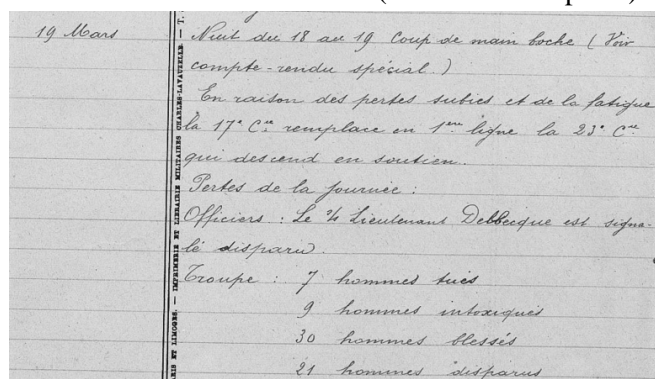 19 Mars
Nuit du 18 au 19 Coup de main boche (Voir
compte-rendu spécial.)
En raison des pertes subies et de la fatigue
la 17e Cie remplace en 1ère ligne la 23e Cie
qui descend en soutien.
Pertes de la journée :
Officiers : Le s/s Lieutenant Delbecque est signa-
lé disparu.
Troupe : 7 hommes tués
9 hommes intoxiqués
30 hommes blessés
21 hommes disparus
RIS ET LIMOGES. — IMPRIMERIE ET LIBRAIRIE MILITAIRES CHARLES-LAVAUZELLE — T.